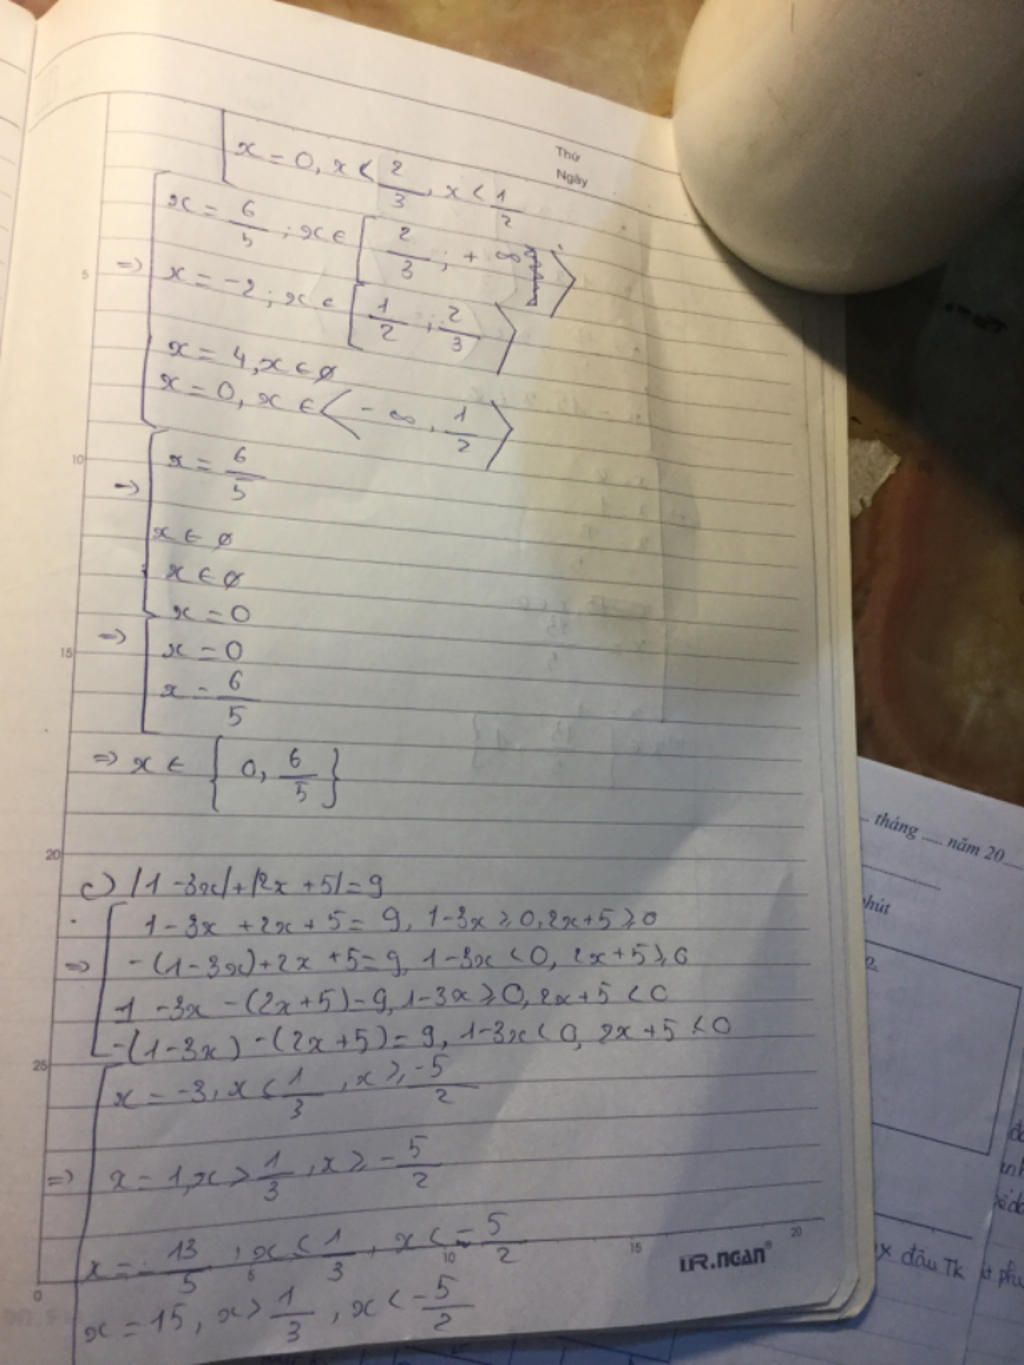 Thứ
Ngày
x = 0, x < 2/3, x < 1/2
x = 6/5 ; x ∈ [2/3 ; +∞ ⟩
=> x = -2 ; x ∈ [1/2 ; 2/3⟩
x = 4, x ∈ ø
x = 0, x ∈ ⟨-∞, 1/2⟩
=> x = 6/5
x ∈ ø
x ∈ ø
x = 0
=> x = 0
x = 6/5
=> x ∈ {0, 6/5}
c) |1 -3x|+|2x +5|=9
1-3x +2x+5= 9, 1-3x ≥0, 2x+5 ≥0
=> -(1-3x)+2x +5=9, 1-3x <0, 2x+5 ≥0
1 -3x -(2x+5)=9, 1-3x ≥0, 2x+5 <0
-(1-3x) -(2x+5)= 9, 1-3x< 0, 2x+5 <0
x = -3, x < 1/3, x ≥ -5/2
=> x = 1, x > 1/3, x ≥ -5/2
x = -13/5, x ≤ 1/3, x < -5/2
x = 15, x > 1/3, x < -5/2
5
10
15
20
25
0
5
10
15
20
MR.NGAN®
tháng .... năm 20
hút
x đầu TK